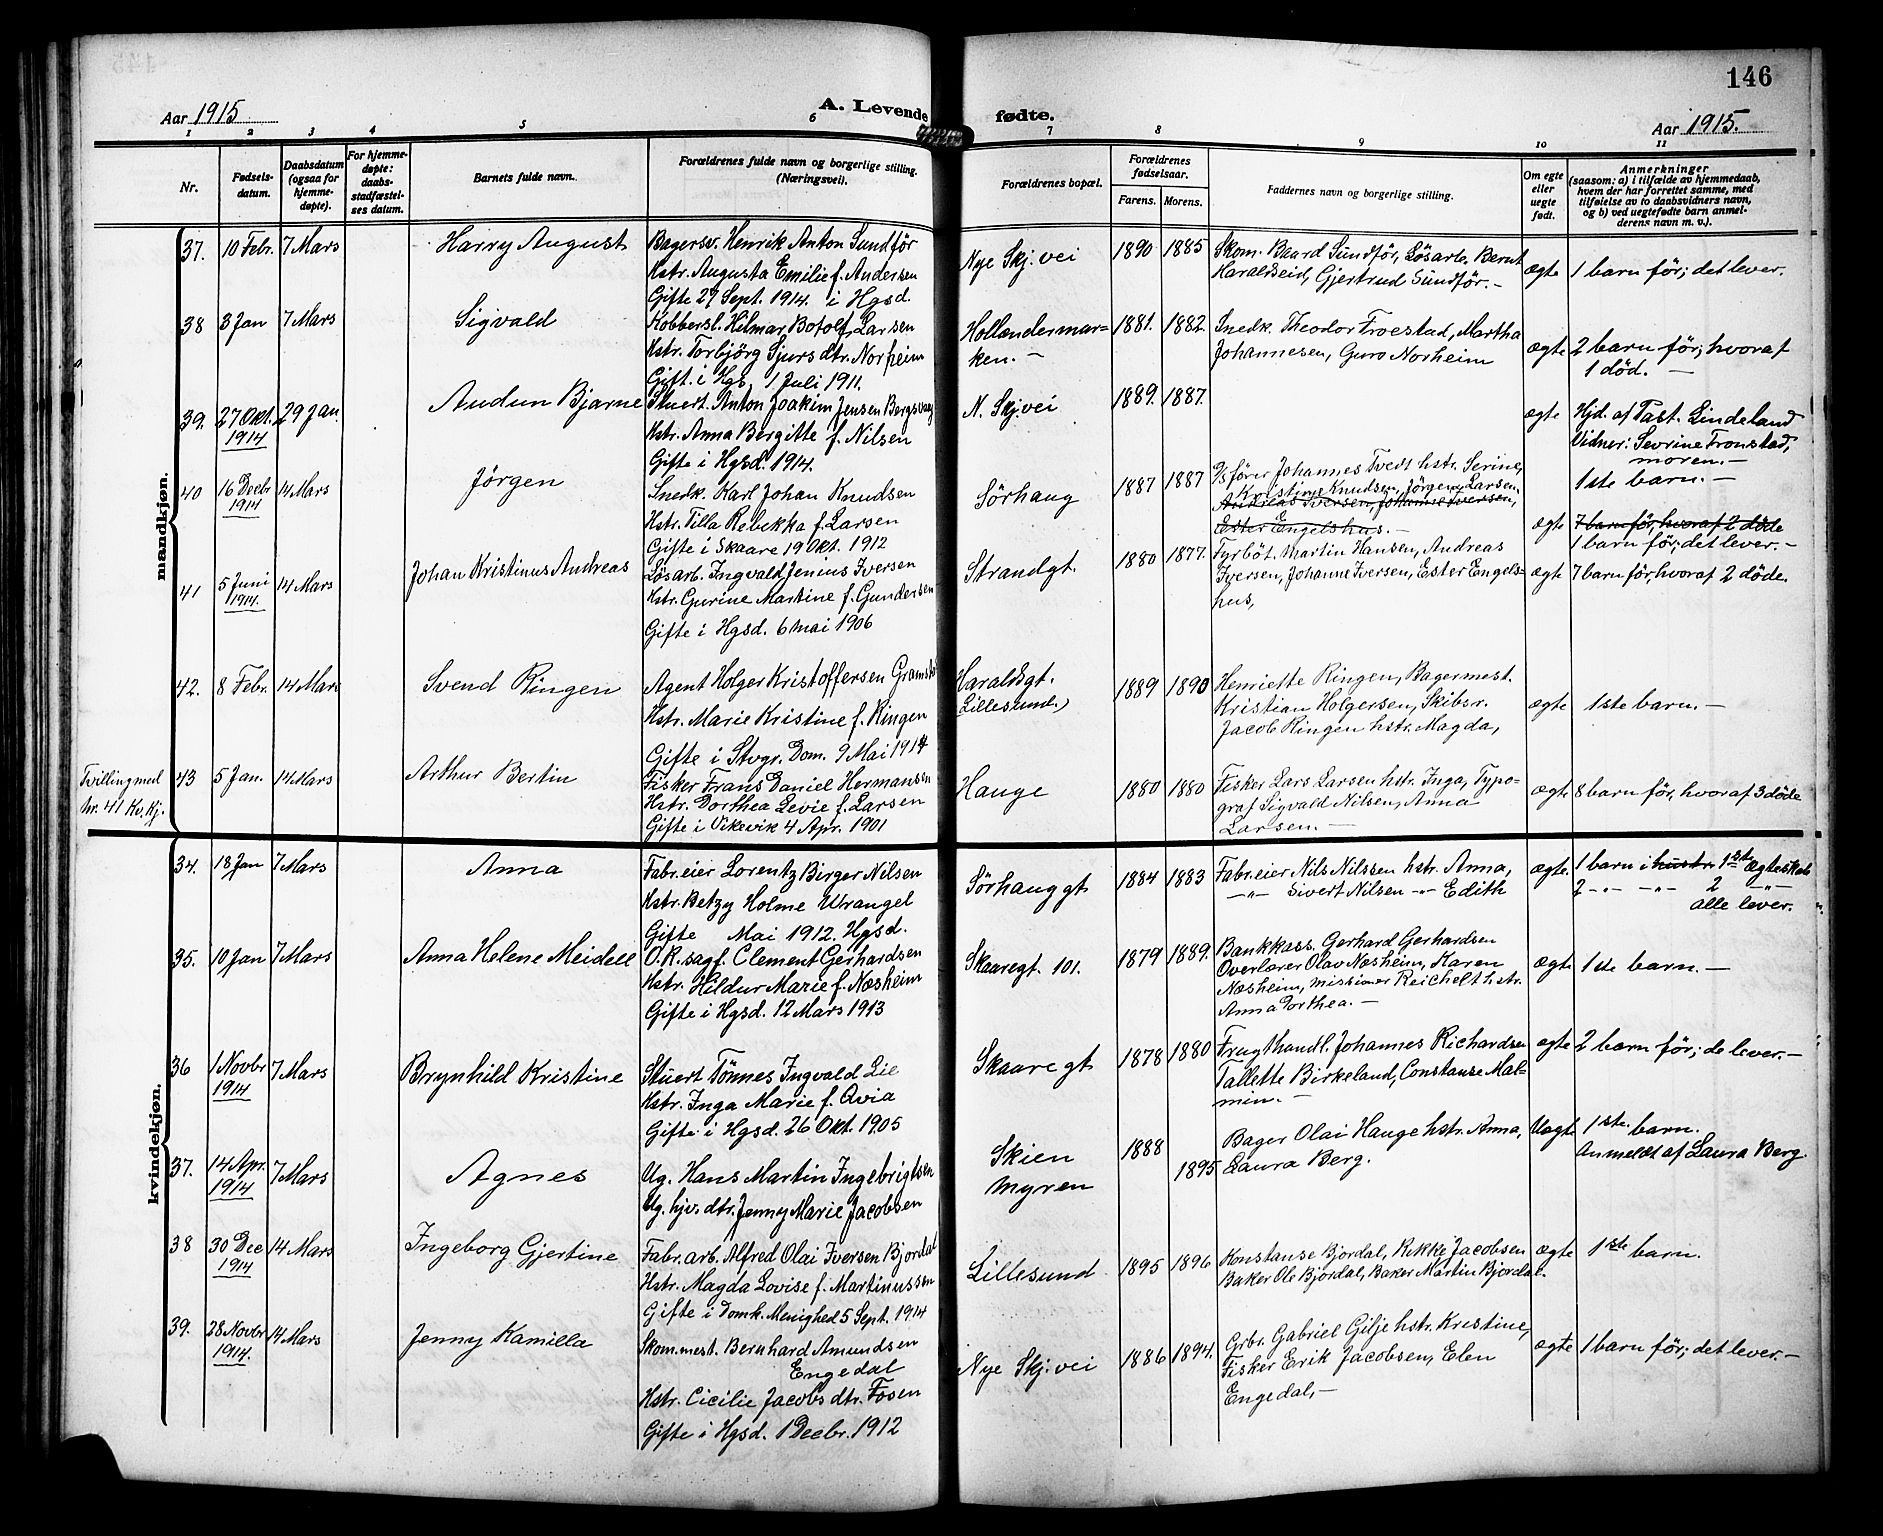 146
Aar 1915
A. Levende fødte.
Aar 1915.
1 2 3 4 5 6 7 8 9 10 11
Nr.
Fødsels-
datum.
Daabsdatum
(ogsaa for
hjemme-
døpte).
For hjemme-
døpte:
daabs-
stadfæstel-
ses datum.
Barnets fulde navn.
Forældrenes fulde navn og borgerlige stilling.
(Næringsvei).
Forældrenes bopæl.
Forældrenes
fødselsaar.
Farens. Morens.
Faddernes navn og borgerlige stilling.
Om egte
eller
uegte
født.
Anmerkninger
(saasom: a) i tilfælde av hjemmedaab,
hvem der har forrettet samme, med
tilføielse av to daabsvidners navn,
og b) ved uegtefødte barn anmel-
derens navn m. v.).
mandkjøn.
37. 10 Febr. 7 Mars
Harry August
Bagersv. Henrik Anton Sundför
Hstr. Augusta Emilie f. Andersen
Gifte 27 Sept. 1914. i Hgsd.
Nye Skj. vei
1890 1885
Skom. Baard Sundför, Lösarb. Bernt
Haraldseid, Gjertrud Sundför. -
ægte
1 barn för; det lever.
38 3 Jan 7 Mars
Sigvald
Kobbersl. Hilmar Botolf Larsen
Hstr. Torbjörg Sjurs dtr. Norheim
Gift. i Hgs, 1 Juli 1911.
Hollendermar-
ken. -
1881. 1882.
Snedk. Theodor Froestad, Martha
Johannesen, Guro Norheim
ægte
2 barn för; hvoraf
1 död. -
39. 27 Okt. 29 Jan.
1914
Audun Bjarne
Stuert. Anton Joakim Jensen Bergsvag
Hstr. Anna Bergitte f. Nilsen
Gifte i Hgsd. 1914.
N. Skj. vei
1889. 1887.
ægte
Hjd. af Past. Lindeland
Vidner: Sevrine Tronstad,
moren. -
1ste barn. -
40 16 Decbr 14 Mars
1914
Jörgen
Snedk. Karl Johan Knudsen
Hstr. Tilla Rebekka f. Larsen
Gifte i Skaare 19 Okt. 1912
Sörhaug
1887 1887
D/S förer Johannes Tvedt hstr. Serine,
Kristine Knudsen, Jörgen Larsen.
Andreas Iversen, Johanne Iversen,
Ester Engelshus. -
ægte
7 barn för, hvoraf 2 döde
1 barn för; det lever. -
41 5 Juni 14 Mars
1914.
Johan Kristinus Andreas
Lösarb. Ingvald Jenius Iversen
Hstr. Gurine Martine f. Gundersen
Gifte i Hgsd. 6 mai 1906
Strandgt.
1880 1877.
Fyrböt. Martin Hansen, Andreas
Iversen, Johanne Iversen, Ester Engels-
hus,
ægte
7 barn för, hvoraf 2 döde.
42. 8 Febr. 14 Mars
Svend Ringen
Agent Holger Kristoffersen
Hstr. Marie Kristine f. Ringen
Gifte i Stvgr. Dom. 9 Mai 1914
Haraldsgt.
(Lillesund.)
1889 1890
Henriette Ringen, Bagermest.
Kristian Holgersen, Skibsr.
Jacob Ringen hstr. Magda,
ægte
1ste barn. -
Tvilling med
Nr. 41 Kv. Kj.
43 5 Jan. 14 Mars
Arthur Bertin
Fisker Frans Daniel Hermansen
Hstr. Dorthea Levie f. Larsen
Gifte i Vikevik 4 Apr. 1901
Hauge
1880 1880
Fisker Lars Larsen hstr. Inga, Typo-
graf Sigvald Nilsen, Anna
Larsen. -
ægte
8 barn för, hvoraf 3 döde
kvindekjøn.
34. 18 Jan 7 Mars
Anna
Fabr.eier Lorentz Birger Nilsen
Hstr. Betzy Holme Wrangel
Gifte Mai 1912. Hgsd.
Sörhauggt
1884 1883
Fabr.eier Nils Nilssen hstr. Anna,
-"- Sivert Nilsen -"- Edith
ægte.
1 barn i hustr. 1st Ægteskab
2 -"- -"- 2 -"-
alle lever.
35. 10 Jan 7 Mars
Anna Helene Meidell
O.R.sagf. Clement Gerhardsen
Hstr. Hildur Marie f. Næsheim
Gifte i Hgsd. 12 Mars 1913
Skaaregt. 101.
1879 1889.
Bankkass. Gerhard Gerhardsen
Overlærer Olav Næsheim, Karen
Næsheim, missionær Reichelt hstr.
Anna Dorthea. -
ægte
1ste barn. -
36 1 Novbr 7 Mars
1914
Brynhild Kristine
Stuert Tönnes Ingvald Lie
Hstr. Inga Marie f. Qvia
Gifte i Hgsd. 26 Okt. 1905
Skaaregt
1878 1880
Frugthandl. Johannes Richardsen
Tallette Birkeland, Constanse Mal-
min. -
ægte
2 barn för; de lever. -
37. 14 Apr. 7 Mars
1914
Agnes
Ug. Hans Martin Ingebrigtsen
Ug. hjv. dtr. Jenny Marie Jacobsen
Skien
Myren
1888
1895
Bager Olai Hauge hstr. Anna,
Laura Berg.
Uægte
1ste. barn.
Anmeldt af Laura Berg.
38 30 Dec 14 Mars
1914
Ingeborg Gjertine
Fabr. arb. Alfred Olai Iversen Bjordal
Hstr. Magda Lovise f. Martinussen
Gifte i Domk. Menighed 5 Sept. 1914
Lillesund.
1895 1896
Konstanse Bjordal, Rikke Jacobsen
Baker Ole Bjordal, Baker Martin Bjordal.
Ægte
1ste barn.
39. 28 Novbr 14 Mars
1914.
Jenny Kamilla
Skom.mest. Bernhard Amundsen
Engedal
Hstr. Cicilie Jacobs dtr. Fosen
Gifte i Hgsd. 1 Decbr. 1912
Nye Skj. vei
1886 1894.
Grbr. Gabriel Gilje hstr. Kristine,
Fisker Erik Jacobsen, Elen
Engedal, -
ægte
1 barn för; det lever. -